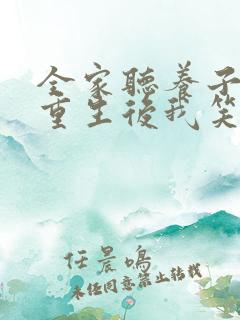 全家聽養子
重生後我笑
任晨鳴
未經同意禁止轉載